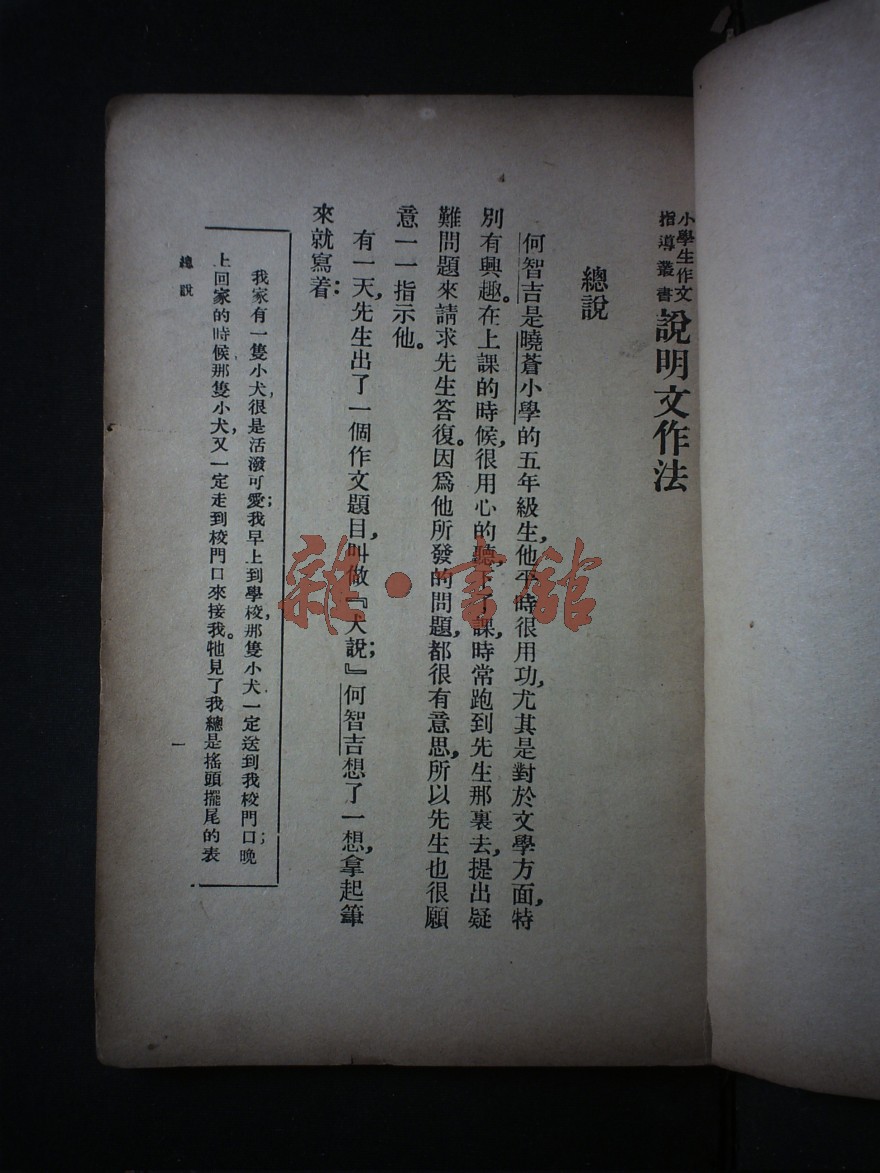 小學生作文
指導叢書
說明文作法
總說
何智吉是曉蒼小學的五年級生，他平時很用功，尤其是對於文學方面，特
別有興趣。在上課的時候，很用心的聽，下了課，時常跑到先生那裏去，提出疑
難問題來請求先生答復。因爲他所發的問題，都很有意思，所以先生也很願
意一一指示他。
有一天，先生出了一個作文題目，叫做『犬說；』何智吉想了一想，拿起筆
來就寫着：
我家有一隻小犬，很是活潑可愛；我早上到學校，那隻小犬一定送到我校門口；晚
上回家的時候，那隻小犬，又一定走到校門口來接我。牠見了我，總是搖頭擺尾的表
總說
一
雜·書館